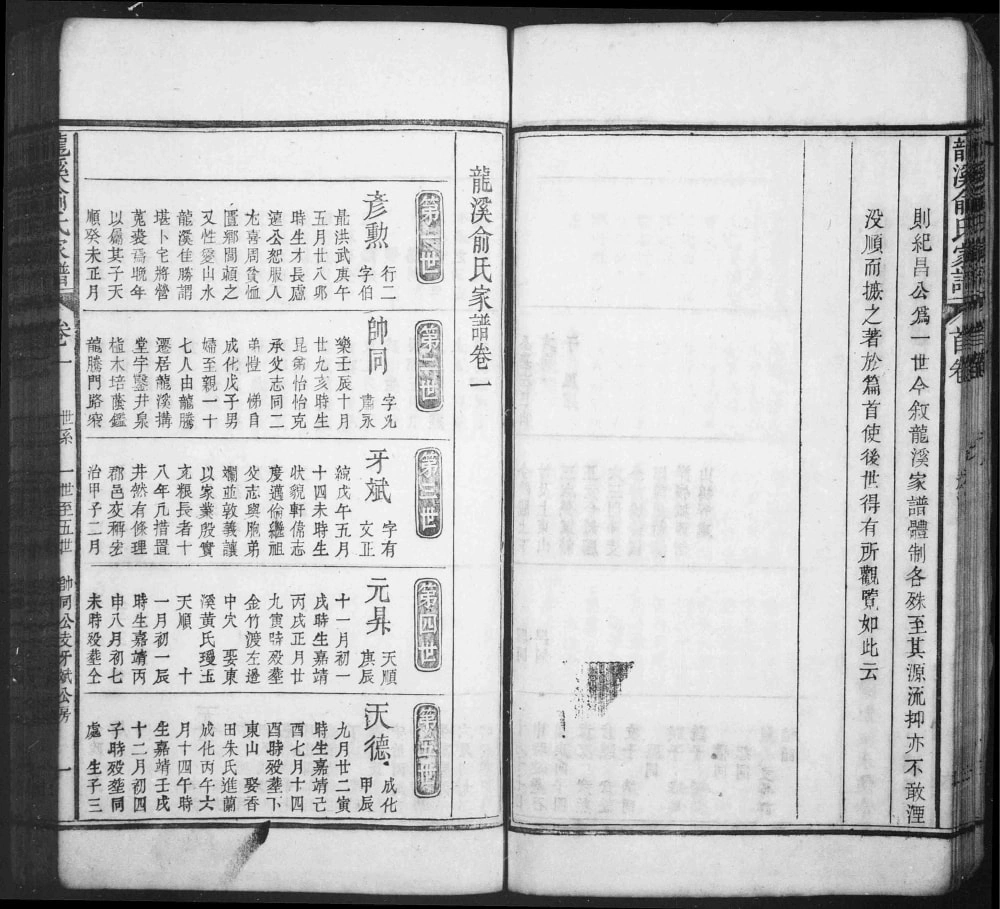 龍溪俞氏家譜 首卷
則紀昌公爲一世今叙龍溪家譜體制各殊至其源流抑亦不敢湮
没順而摭之著於篇首使後世得有所觀覽如此云
龍溪俞氏家譜卷一
第一世
彥勲
行二
字伯
洪武庚午
五月廿八
時生才長處
遠公恕服人
尤喜周貧恤
匱鄉閭頼之
又性愛山水
龍溪佳勝謂
堪卜宅將營
菟裘爲晩年
以屬其子天
順癸未正月
第二世
帥同
字允
肅永
樂壬辰十月
廿九亥時生
昆弟怡怡克
承父志同二
弟愷 悌自
成化戊子男
婦至親一十
七人由龍騰
遷居龍溪搆
堂宇鑿井泉
植木培蔭鑑
龍騰門路窄
第三世
牙斌
字有
文正
統戊午五月
十四未時生
狀貌軒偉志
度邁倫繼祖
父志與胞弟
斕並敦義讓
以家業殷實
充粮長者十
八年凡措置
井然有條理
郡邑交稱宏
治甲子二月
第四世
元昇
天順
庚辰
十一月初一
戌時生嘉靖
丙戌正月廿
九寅時殁塟
金竹渡左邊
中穴 娶東
溪黃氏璦玉
天順 十
一月初一辰
時生嘉靖丙
申八月初七
未時殁塟仝
第五世
天德
成化
甲辰
九月廿二寅
時生嘉靖己
酉七月十四
酉時殁塟下
東山 娶香
田朱氏進蘭
成化丙午六
月十四午時
生嘉靖壬戌
十二月初四
子時殁塟同
處 生子三
龍溪俞氏家譜 卷一 世系 一世至五世 帥同公支牙斌公房 一